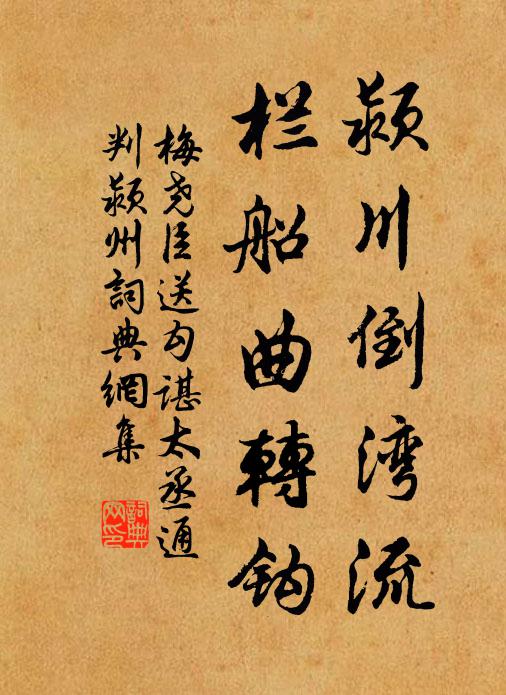 颍川倒湾流
栏船曲轉钩
梅尧臣送勾谌太丞通
判颍州詞典網集
詞典网印